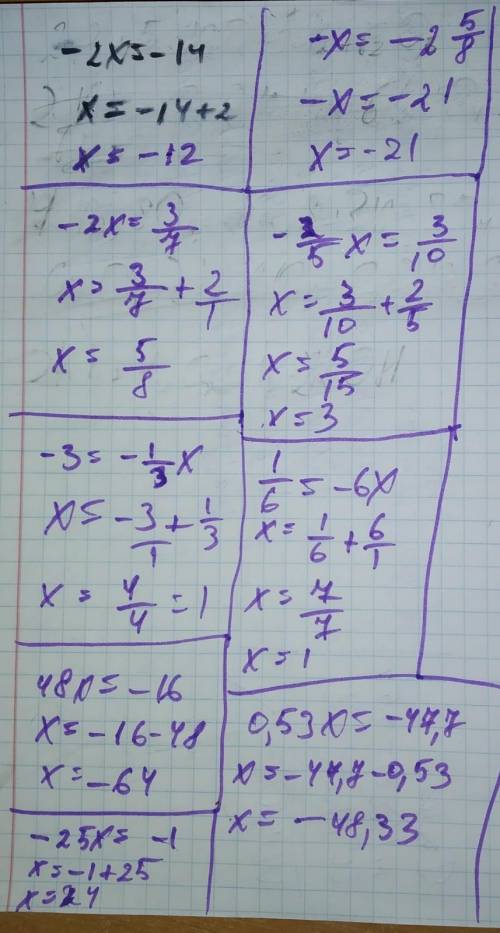 -2x=-14
x=-14+2
x=-12
-x=-2 5/8
-x=-21
x=-21
-2x=3/7
x=3/7+2/1
x=5/8
-2/5x=3/10
x=3/10+2/5
x=5/15
x=3
-3=-1/3x
x=-3/1+1/3
x=4/4=1
1/6=-6x
x=1/6+6/1
x=7/7
x=1
48x=-16
x=-16-48
x=-64
0,53x=-47,7
x=-47,7-0,53
x=-48,33
-25x=-1
x=-1+25
x=24